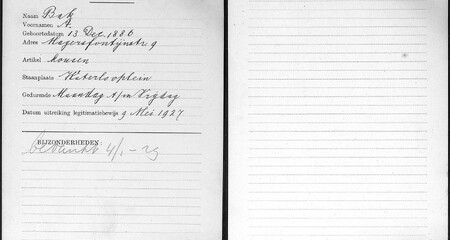 Naam Bak
Voornamen A.
Geboortedatum 13 Dec. 1886
Adres Magersfontijnstr. 9
Artikel kousen
Staanplaats Waterlooplein
Gedurende Maandag t/m Vrijdag
Datum uitreiking legitimatiebewijs 9 Mei 1927
BIJZONDERHEDEN:
4/1 - 29